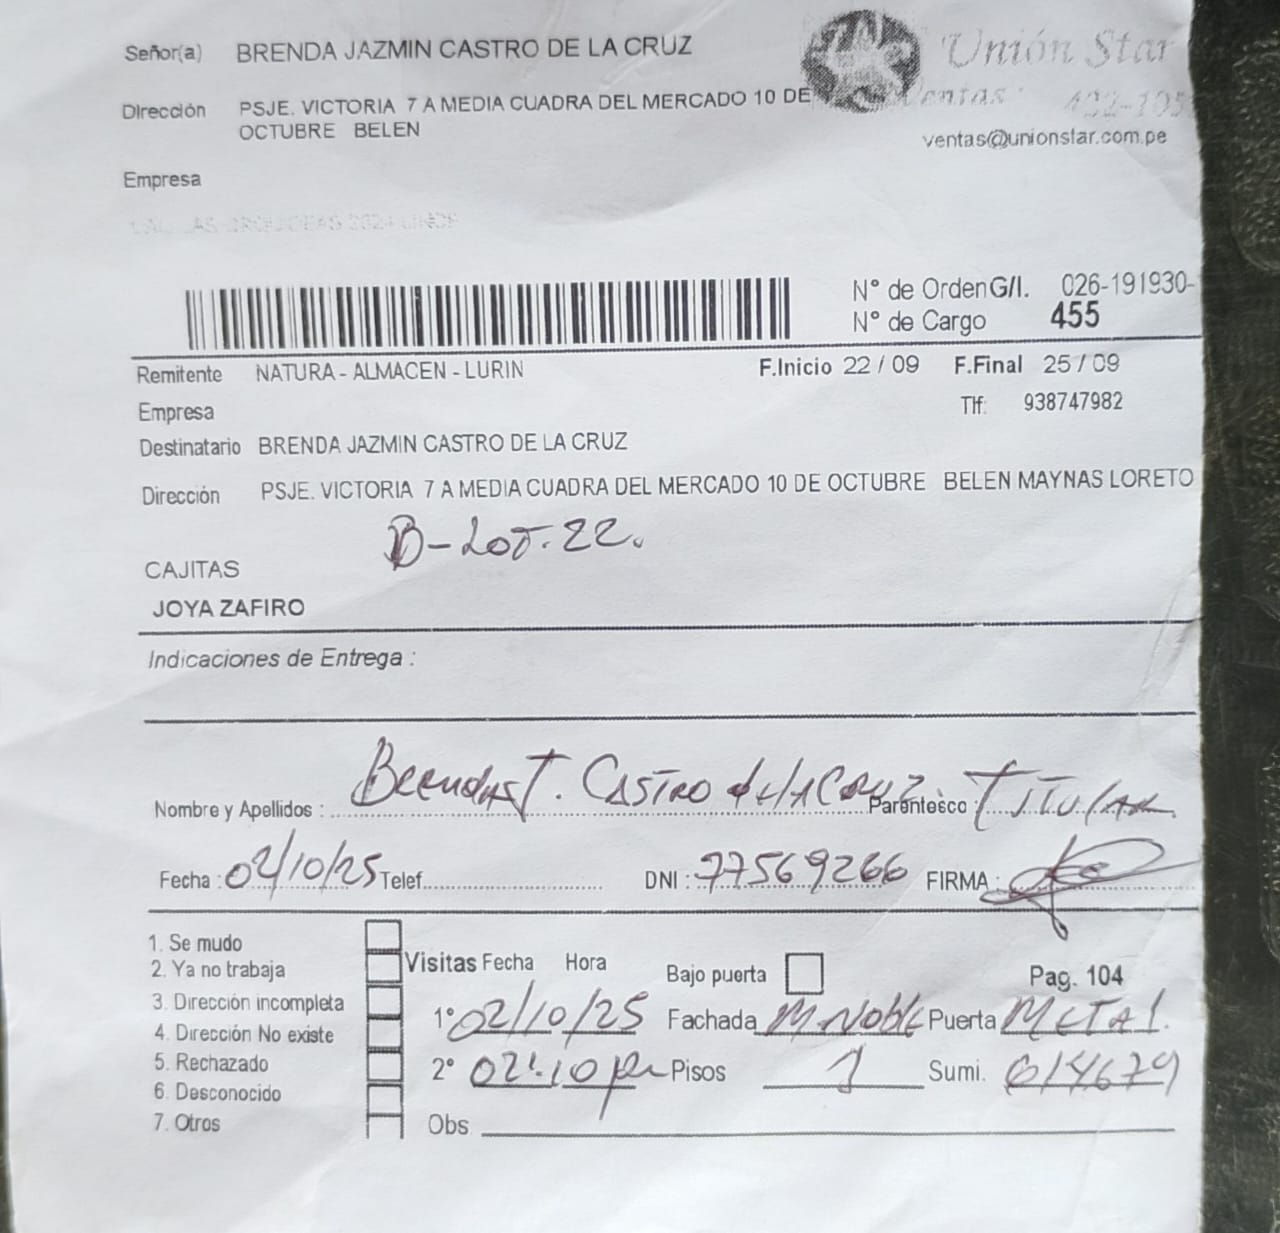 Señor(a) BRENDA JAZMIN CASTRO DE LA CRUZ
Unión Star
Dirección PSJE. VICTORIA 7 A MEDIA CUADRA DEL MERCADO 10 DE
OCTUBRE BELEN
ventas@unionstar.com.pe
Empresa
N° de Orden G/I. 026-191930-
N° de Cargo 455
Remitente NATURA - ALMACEN - LURIN F.Inicio 22 / 09 F.Final 25 / 09
Empresa Tlf: 938747982
Destinatario BRENDA JAZMIN CASTRO DE LA CRUZ
Dirección PSJE. VICTORIA 7 A MEDIA CUADRA DEL MERCADO 10 DE OCTUBRE BELEN MAYNAS LORETO
B-LOT. 22.
CAJITAS
JOYA ZAFIRO
Indicaciones de Entrega :
Nombre y Apellidos : Brenda J. Castro de la Cruz Parentesco : Titular
Fecha : 02/10/25 Telef. DNI : 77569266 FIRMA :
1. Se mudo
2. Ya no trabaja
3. Dirección incompleta
4. Dirección No existe
5. Rechazado
6. Desconocido
7. Otros
Visitas Fecha Hora Bajo puerta Pag. 104
1° 02/10/25 Fachada M. Noble Puerta Metal.
2° 02:10 pm Pisos 1 Sumi. 614679
Obs